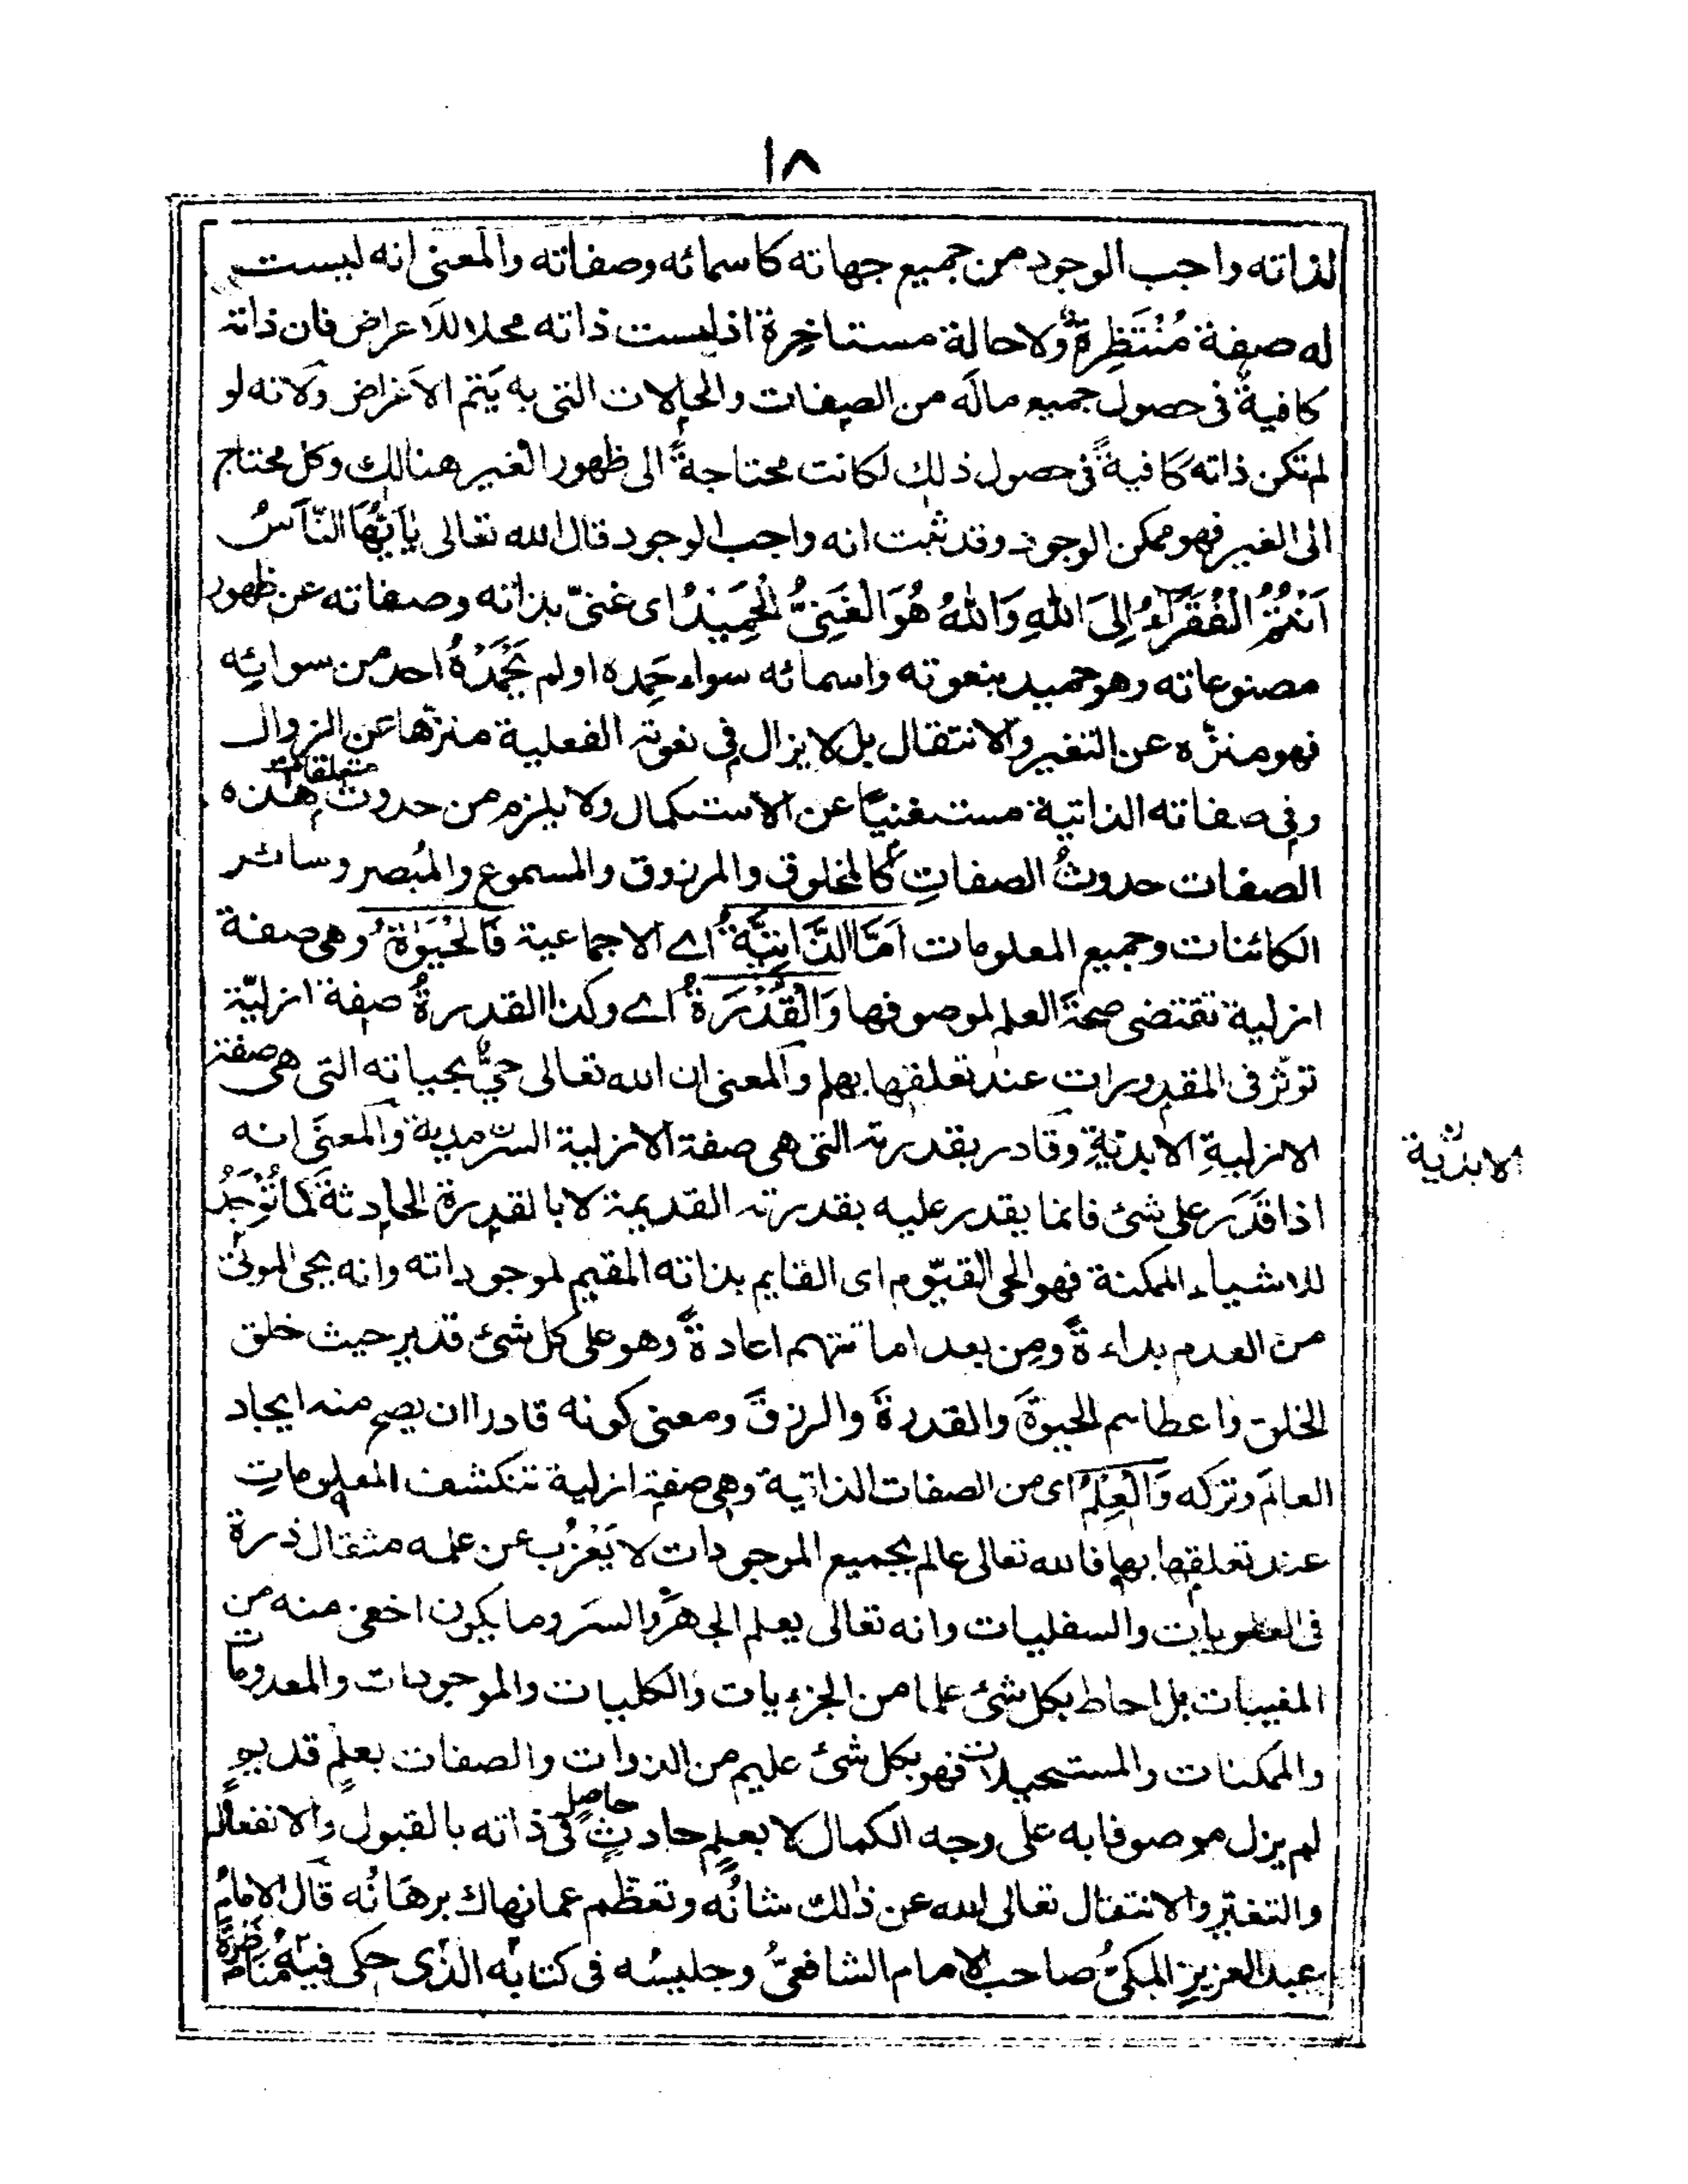 ١٨
لذاته واجب الوجود من جميع جهاته كاسمائه وصفاته والمعنى انه ليست
له صفة مُنْتَظِرة ولا حالة مستاخِرة اذ ليست ذاته محلا للاعراض فان ذاته
كافية فى حصول جميع ماله من الصفات والحالات التى به يَتم الاغراض ولانه لو
لم تكن ذاته كافيةً فى حصول ذلك لكانت محتاجةً الى ظهور الغير هنالك وكل محتاج
الى الغير فهو ممكن الوجود وقد ثبت انه واجب الوجود قال الله تعالى يٰاَيُّهَا النَّاسُ
اَنْتُمُ الْفُقَرَآءُ اِلَى اللهِ وَاللهُ هُوَ الْغَنِىُّ الْحَمِيْدُ اى غنىّ بذاته وصفاته عن ظهور
مصنوعاته وهو حميد بنعوته واسمائه سواء حَمِده او لم يَحْمَدْهُ احد من سوائِه
فهو منزّه عن التغير والانتقال بل لا يزال فى نعوته الفعلية منزّها عن الزوال
وفى صفاته الذاتية مستغنيًا عن الاستكمال ولا يلزم من حدوث متعلقات هذه
الصفات حدوثُ الصفاتِ كالمخلوق والمرزوق والمسموع والمُبصر وسائر
الكائنات وجميع المعلومات اَمَّا الذَّاتِيَّةُ اے الاجماعية فَالْحَيٰوةُ وهى صفة
ازلية تقتضى صحةَ العلم لموصوفها وَالْقُدْرَةُ اے وكذا القدرةُ صفة ازليّة
توثر فى المقدورات عند تعلقها بها والمعنى ان الله تعالى حىٌّ بحياته التى هى صفته
الازليةِ الابديّةِ وقادر بقدرته التى هى صفة الازلية السرمدية والمعنى انه
الابديّة
اذا قَدَر على شئ فانما يقدر عليه بقدرته القديمة لا بالقدرة الحادثة كما تُوْجَدُ
للاشياء الممكنة فهو الحى القيّوم اى القايم بذاته المقيم لموجوداته وانه يحى الموتى
من العدم بداءةً ومِن بعد اماتتهم اعادةً وهو على كل شئ قدير حيث خلق
الخلق واعطاهم الحيوةَ والقدرةَ والرزقَ ومعنى كونه قادرا ان يصح منه ايجاد
العالَم وتركه وَالْعِلْمُ اى من الصفات الذاتية وهى صفة ازلية تنكشف المعلومات
عند تعلقها بها فالله تعالى عالم بجميع الموجودات لا يَعْزُب عن علمه مثقال ذرة
فى العلويات والسفليات وانه تعالى يعلم الجهرَ والسرَ وما يكون اخفى منه من
المغيبات بل احاط بكل شئ علما من الجزءيات والكليات والموجودات والمعدومات
والممكنات والمستحيلات فهو بكل شئ عليم من الذوات والصفات بعلمٍ قديمٍ
لم يزل موصوفا به على وجه الكمال لا بعلمٍ حادثٍ حاصلٍ فى ذاته بالقبول والانفعال
والتغيّر والانتقال تعالى الله عن ذلك شانُه وتعظّم عما نهاك برهانُه قال الامامُ
عبد العزيزِ المكىُّ صاحب الامام الشافعىُّ وجليسُه فى كتابه الذى حكى فيه مناظرةً